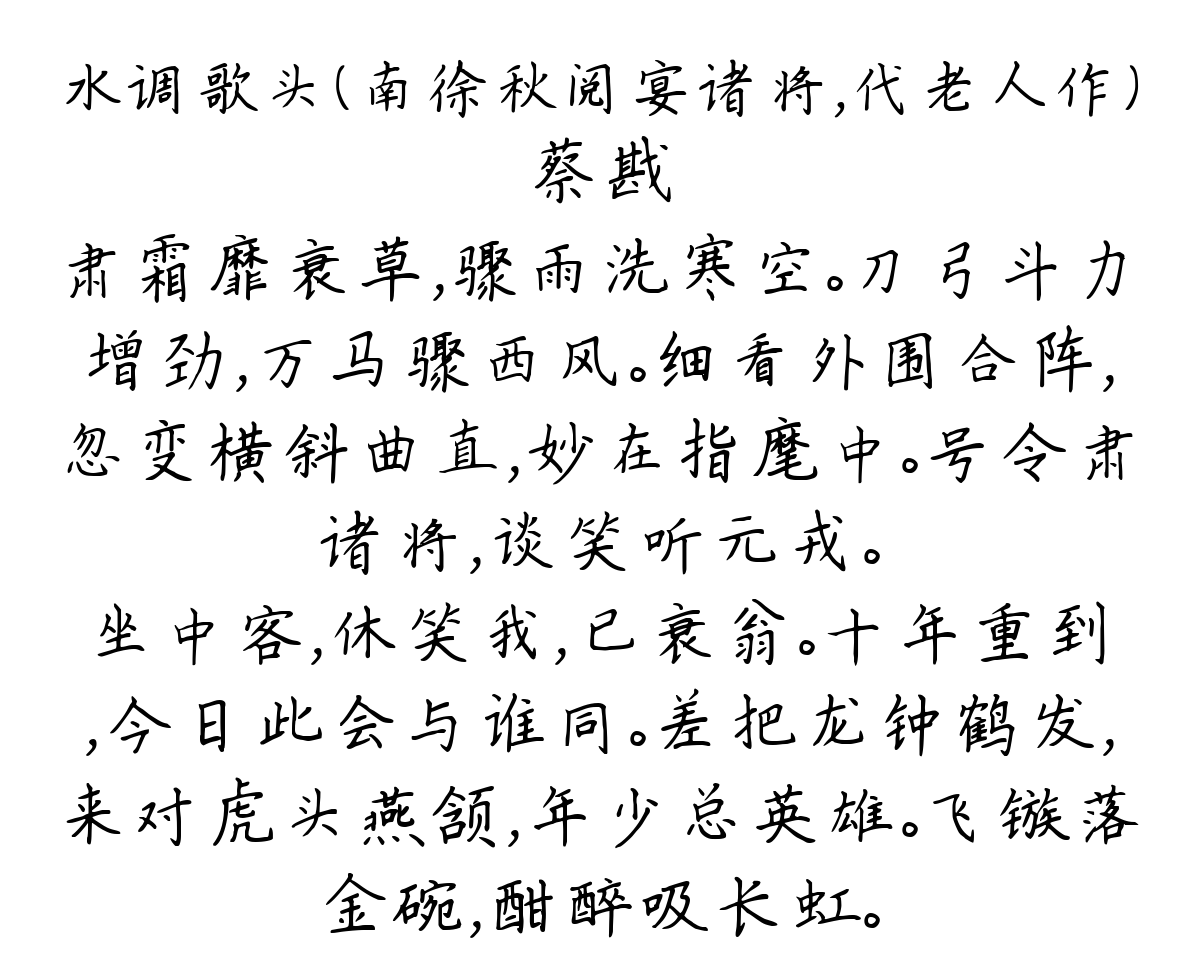 水调歌头(南徐秋阅宴诸将,代老人作)
蔡戡
肃霜靡衰草,骤雨洗寒空。刀弓斗力
增劲,万马骤西风。细看外围合阵,
忽变横斜曲直,妙在指麾中。号令肃
诸将,谈笑听元戎。
坐中客,休笑我,已衰翁。十年重到
,今日此会与谁同。差把龙钟鹤发,
来对虎头燕颔,年少总英雄。飞镞落
金碗,酣醉吸长虹。